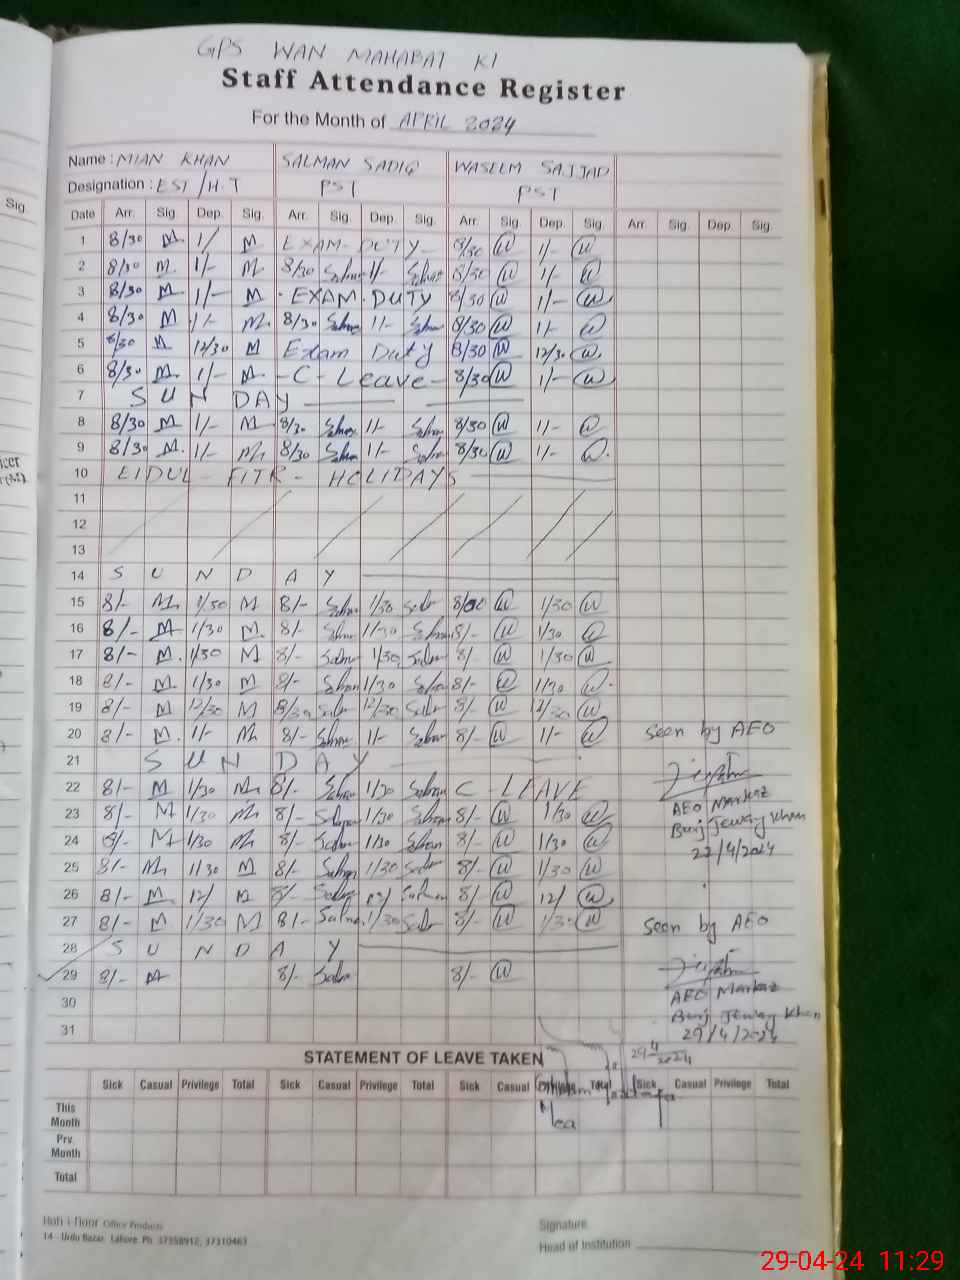 GPS WAN MAHABAT KI
Staff Attendance Register
For the Month of APRIL 2024
Name : MIAN KHAN SALMAN SADIQ WASEEM SAJJAD
Designation : EST/H.T PST PST
Sig.
Date Arr. Sig. Dep. Sig. Arr. Sig. Dep. Sig. Arr. Sig. Dep. Sig. Arr. Sig. Dep. Sig.
1 8/30 M 1/ M EXAM-DUTY 8/30 W 1/- W
2 8/30 M 1/- M 8/30 Salman 1/- Salman 8/30 W 1/- W
3 8/30 M 1/- M EXAM DUTY 8/30 W 1/- W
4 8/30 M 1/- M 8/30 Salman 1/- Salman 8/30 W 1/- W
5 8/30 M 12/30 M Exam Duty 8/30 W 12/30 W
6 8/30 M 1/- M -C-Leave- 8/30 W 1/- W
7 SUNDAY
8 8/30 M 1/- M 8/30 Salman 1/- Salman 8/30 W 1/- W
9 8/30 M 1/- M 8/30 Salman 1/- Salman 8/30 W 1/- W
10 EIDUL-FITR-HOLIDAYS
11
12
13
14 SUNDAY
15 8/- M 1/30 M 8/- Salman 1/30 Salman 8/00 W 1/30 W
16 8/- M 1/30 M 8/- Salman 1/30 Salman 8/- W 1/30 W
17 8/- M 1/30 M 8/- Salman 1/30 Salman 8/- W 1/30 W
18 8/- M 1/30 M 8/- Salman 1/30 Salman 8/- W 1/30 W
19 8/- M 12/30 M 8/30 Salman 12/30 Salman 8/- W 12/30 W
20 8/- M 1/- M 8/- Salman 1/- Salman 8/- W 1/- W seen by AEO
21 SUNDAY
22 8/- M 1/30 M 8/- Salman 1/30 Salman C-LEAVE AEO Markaz
23 8/- M 1/30 M 8/- Salman 1/30 Salman 8/- W 1/30 W Burj Jeway Khan
24 8/- M 1/30 M 8/- Salman 1/30 Salman 8/- W 1/30 W 22/4/2024
25 8/- M 1/30 M 8/- Salman 1/30 Salman 8/- W 1/30 W
26 8/- M 12/ M 8/- Salman 12/ Salman 8/- W 12/ W
27 8/- M 1/30 M 8/- Salman 1/30 Salman 8/- W 1/30 W seen by AEO
28 SUNDAY
29 8/- M 8/- Salman 8/- W
30 AEO Markaz
Burj Jeway Khan
31 29/4/2024
STATEMENT OF LEAVE TAKEN 29/4/2024
Sick Casual Privilege Total Sick Casual Privilege Total Sick Casual Total Sick Casual Privilege Total
This Month
Prv. Month
Total
Office Products
14 - Urdu Bazar, Lahore. Ph: 37358912, 37310463
Signature
Head of Institution
29-04-24 11:29